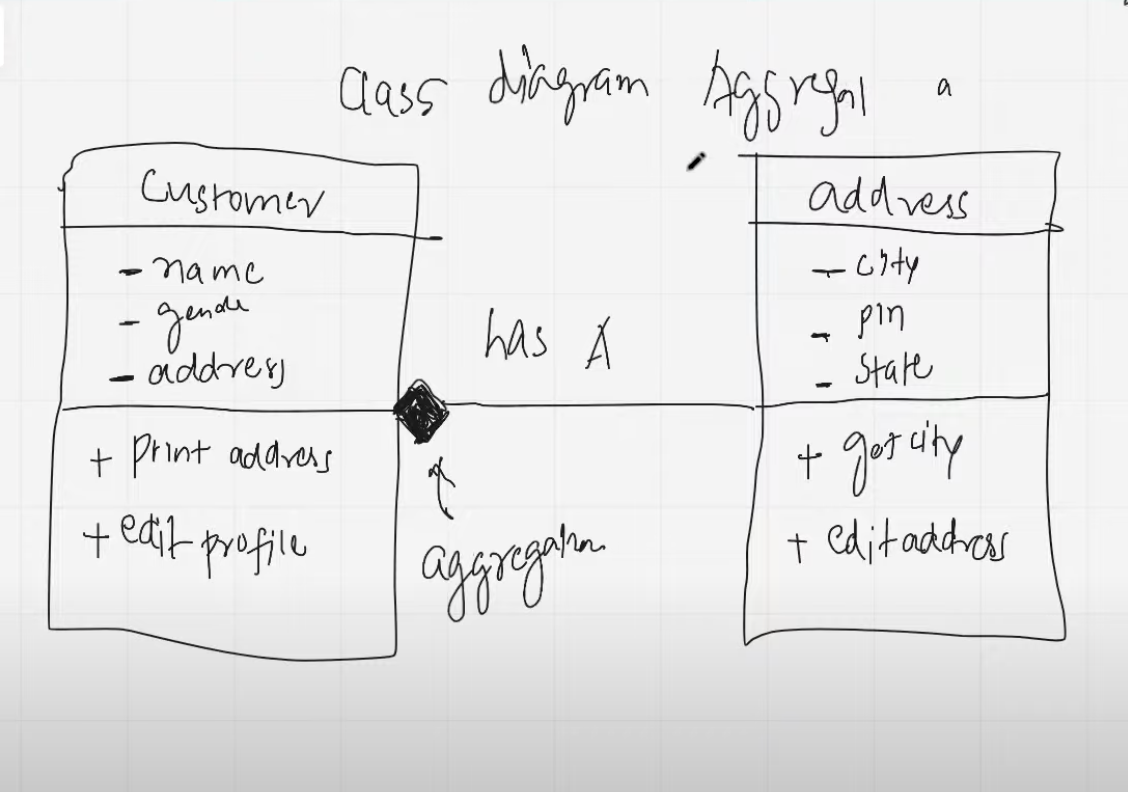 Class diagram Aggregat a
Customer
- name
- gende
- address
+ Print address
+ edit profile
has A
aggregation
address
- city
- pin
- State
+ get city
+ edit address